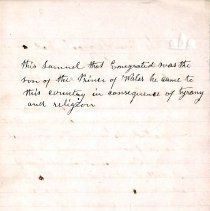 this Samuel that Emegratid was the
son of the Prince of Wales he came to
this country in consequence of tyrony
and religion